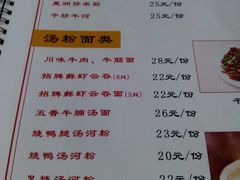 星洲炒米粉 25元/份
干炒牛河 25元/份
汤粉面类
川味牛肉、牛筋面 28元/份
招牌鲜虾云吞(8只) 22元/份
招牌鲜虾云吞面(5只) 22元/份
五香牛腩汤面 26元/份
烧鸭腿汤河粉 23元/份
烧鸭汤河粉 20元/份
叉烧汤河粉 22元/份